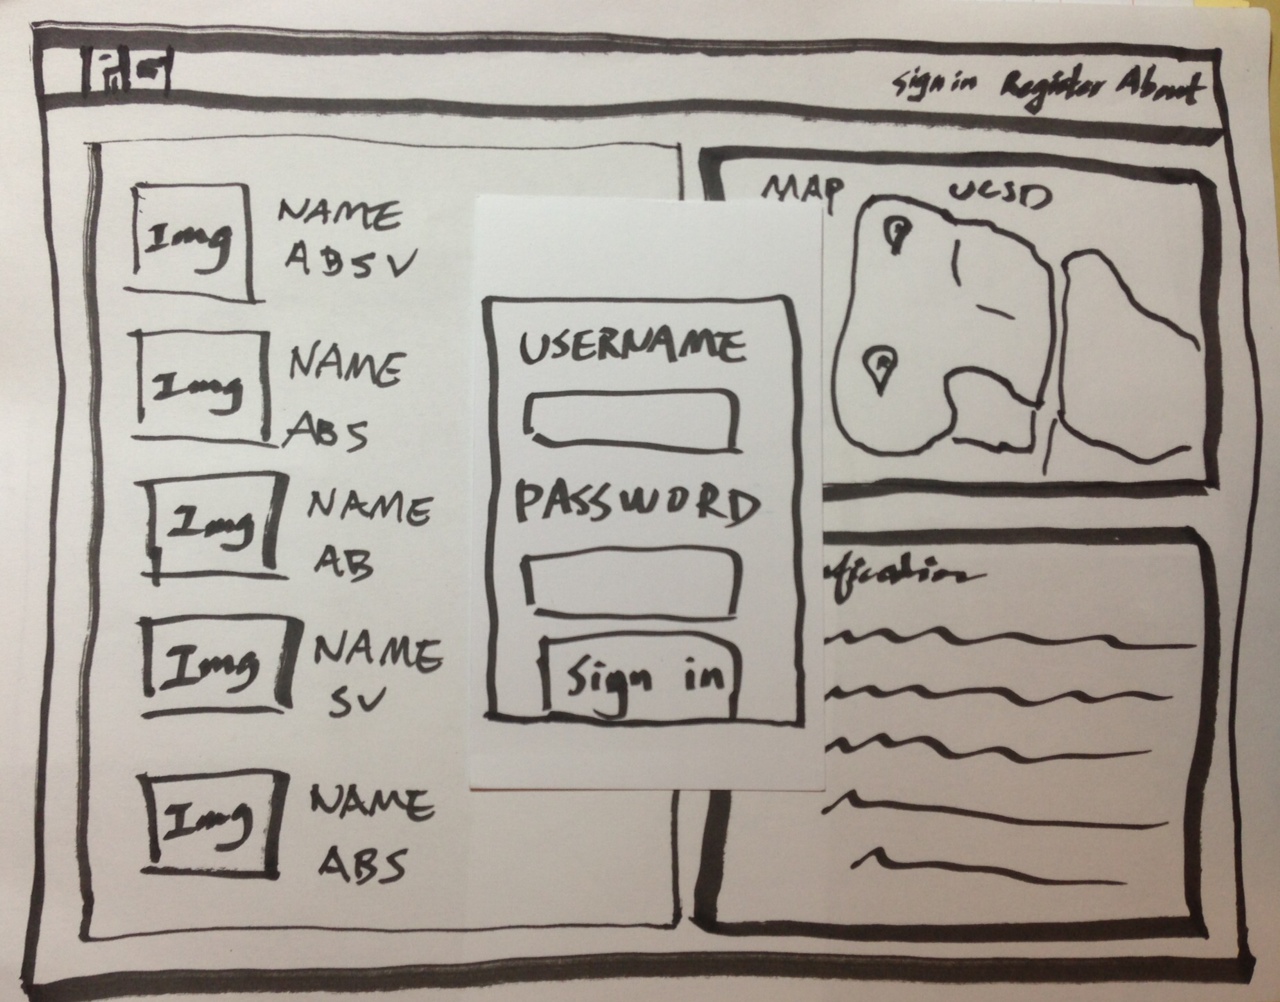 Sign in Register About
Img
NAME
ABSV
Img
NAME
ABS
Img
NAME
AB
Img
NAME
SV
Img
NAME
ABS
USERNAME
PASSWORD
Sign in
MAP UCSD
fication